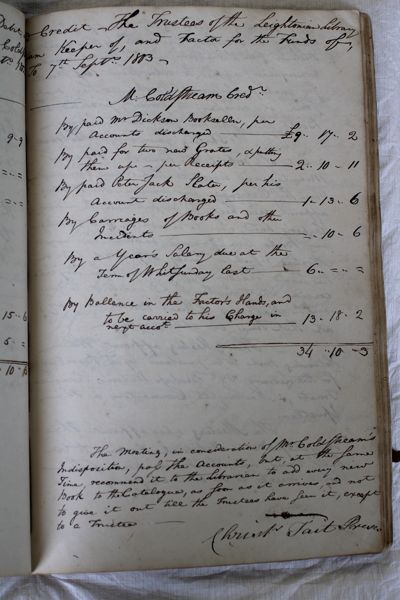 Credit - The Trustees of the Leightonian Library
Keeper of, and Factor for the Funds of,
To 7th Septr. 1803 -
Mr. Coldstream Credr.
By paid Mr Dickson Bookseller, per
Accounts discharged £9 .. 17 .. 2
By paid for two new Grates, & putting
them up - per Receipts 2 .. 10 .. 11
By paid Peter Jack Slater, per his
Account discharged 1 .. 13 .. 6
By Carriages of Books and other
Incidents .. 10 .. 6
By a Year's Salary due at the
Term of Whitsunday last 6 .. = .. =
By Ballance in the Factor's Hands, and
to be carried to his Charge in
next accot. 13 .. 18 .. 2
34 .. 10 .. 3
The Meeting, in consideration of Mr. Coldstream's
Indisposition, pass the Accounts, but, at the same
Time, recommend it to the Librarian to add every new
Book to the Catalogue, as soon as it arrives, and not
to give it out till the Trustees have seen it, except
to a Trustee
Christr. Tait Preses